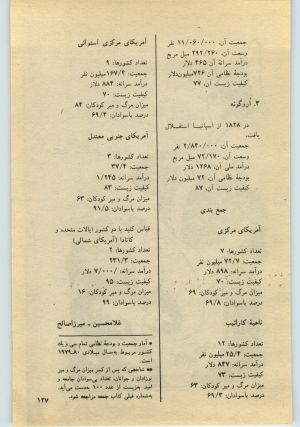 جمعیت آن، ۱۱/۰۶۰/۰۰۰ نفر
وسعت آن، ۲۹۲/۲۶۰ میل مربع
درآمد سرانهٔ آن ۴۶۵ دلار
بودجهٔ نظامی آن ۷۲۶میلیون‌دلار
کیفیت زیست آن، ۷۷
۳. اُروگوئه
در ۱۸۲۸ از اسپانیا استقلال
یافت.
جمعیت آن، ۲/۸۴۰/۰۰۰ نفر
وسعت آن، ۷۲/۱۷۰ میل مربع
درآمد ملی آن ۱۲۶۸ دلار
بودجهٔ نظامی آن ۷۲ دلار
کیفیت زیست آن، ۸۷
جمع بندی
آمریکای مرکزی
تعداد کشورها: ۷
جمعیت: ۷۲/۷ میلیون نفر
درآمد سرانه: ۸۹۸ دلار
کیفیت زیست: ۷۰
میزان مرگ و میر کودکان: ۶۹
درصد باسوادان: ۶۹/۸
ناحیهٔ کارائیب
تعداد کشورها: ۱۲
جمعیت: ۲۵/۴ میلیون نفر
درآمد سرانه: ۸۴۷ دلار
کیفیت زیست: ۷۳
میزان مرگ و میر کودکان: ۶۳
درصد باسوادان: ۶۹/۳
آمریکای مرکزی استوائی
تعداد کشورها: ۹
جمعیت: ۱۶۷/۴میلیون نفر
درآمد سرانه: ۸۸۴ دلار
کیفیت زیست: ۷۰
میزان مرگ و میر کودکان: ۸۴
درصد باسوادان: ۶۹/۴
آمریکای جنوبی معتدل
تعداد کشورها: ۳
جمعیت: ۳۷/۴
درآمد سرانه: ۱/۲۴۵
کیفیت زیست: ۸۳
میزان مرگ و میر کودکان: ۶۳
درصد باسوادان: ۹۱/۵
قیاس کنید با دو کشور ایالات متحده و
کانادا (آمریکای شمالی)
تعداد کشورها: ۲
جمعیت: ۲۳۱/۳
درآمد سرانه: ۷/۰۰۰ دلار
کیفیت زیست: ۹۵
میزان مرگ و میر کودکان: ۱۶
درصد باسوادان: ۹۹
غلامحسین ـ میرزاصالح
* آمار جمعیت و بودجهٔ نظامی تمام سی و یک
کشور مربوط به‌سال میلادی ۸۰-۱۹۷۹
است.
* شاخصی که پس از کسر میزان مرگ و میر
نوزادان و جوانان، تعداد بی‌سوادان جامعه و
امید به‌زیست از عدد ۱۰۰ به‌دست می‌آید.
به‌شماره قبلی کتاب جمعه مراجعه شود.
۱۲۷